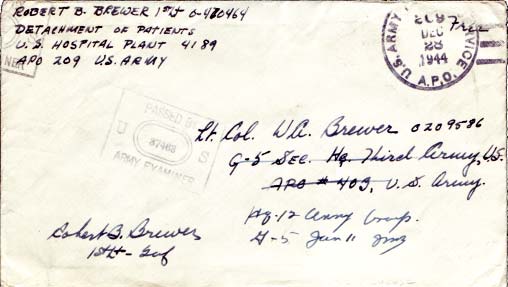 ROBERT B. BREWER 1st Lt O-470464
DETACHMENT OF PATIENTS
U.S. HOSPITAL PLANT 4189
APO 209 U.S. ARMY
209
DEC
28
1944
U.S. ARMY
A.P.O.
Free
PASSED BY
U 37463 S
ARMY EXAMINER
Lt. Col. W.A. Brewer 0209586
G-5 Sec. Hq. Third Army, U.S.
APO # 403, U.S. Army.
Hq. 12 Army Group
G-5 Jan 11
Robert B. Brewer
1st Lt - Inf